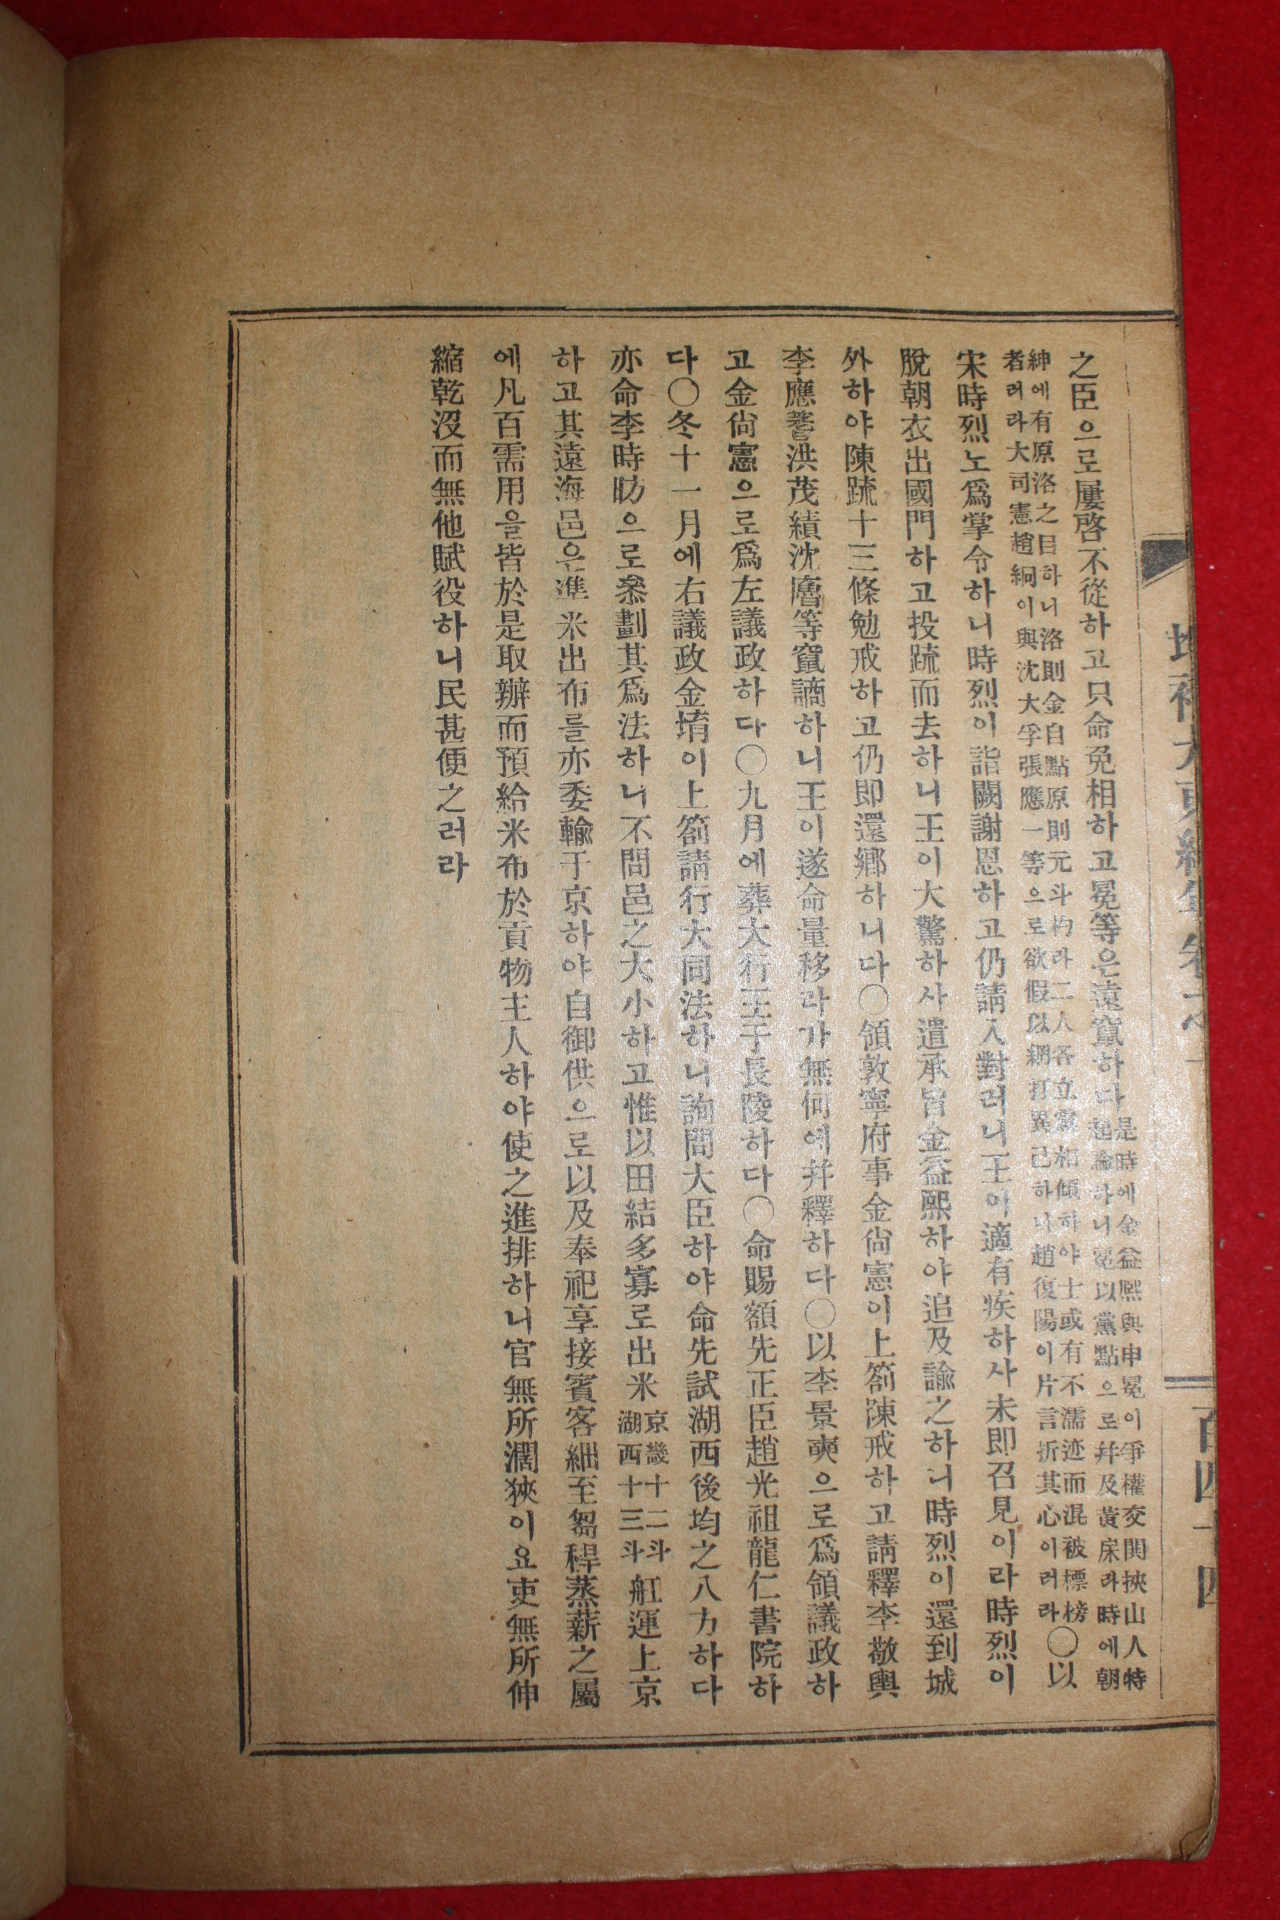 之臣으로屢啓不從하고只命免相하고冕等은遠竄하다是時에金益熙與申冕이爭權交関挾山人特
起論하니冕以黨點으로幷及黃床라時에朝
紳에有原洛之目하니洛則金自點原則元斗杓라二人各立黨相傾하야士或有不濡迹而混被標榜
者러라大司憲趙絅이與沈大孚張應一等으로欲假以網打異己하니趙復陽이片言折其心이러라〇以
宋時烈노爲掌令하니時烈이詣闕謝恩하고仍請入對러니王이適有疾하사未即召見이라時烈이
脫朝衣出國門하고投䟽而去하니王이大驚하사遣承旨金益熙하야追及諭之하니時烈이還到城
外하야陳䟽十三條勉戒하고仍即還鄕하니다〇領敦寧府事金尙憲이上箚陳戒하고請釋李敬輿
李應蓍洪茂績沈𢋡等竄謫하니王이遂命量移라가無何에幷釋하다〇以李景奭으로爲領議政하
고金尙憲으로爲左議政하다〇九月에葬大行王于長陵하다〇命賜額先正臣趙光祖龍仁書院하
다〇冬十一月에右議政金堉이上箚請行大同法하니詢問大臣하야命先試湖西後均之八方하다
亦命李時昉으로叅劃其爲法하니不問邑之大小하고惟以田結多寡로出米京畿十二斗
湖西十三斗舡運上京
하고其遠海邑은準米出布를亦委輸于京하야自御供으로以及奉祀享接賓客細至芻稈蒸薪之屬
에凡百需用을皆於是取辦而預給米布於貢物主人하야使之進排하니官無所濶狹이요吏無所伸
縮乾沒而無他賦役하니民甚便之러라